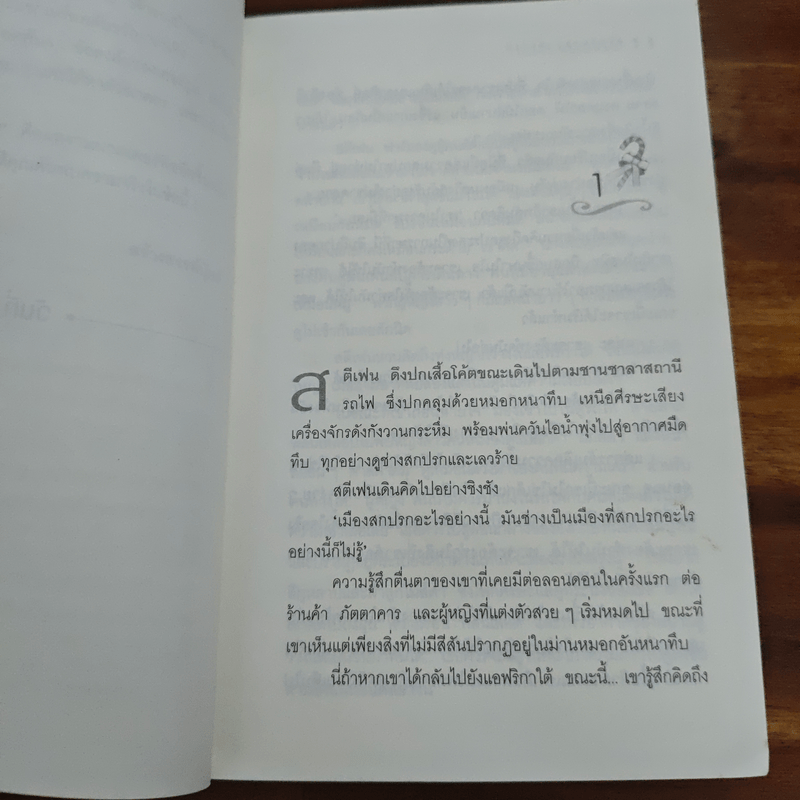 1
สตีเฟน ดึงปกเสื้อโค้ตขณะเดินไปตามชานชาลาสถานี
รถไฟ ซึ่งปกคลุมด้วยหมอกหนาทึบ เหนือศีรษะเสียง
เครื่องจักรดังกังวานกระหึ่ม พร้อมพ่นควันไอน้ำพุ่งไปสู่อากาศมืด
ทึบ ทุกอย่างดูช่างสกปรกและเลวร้าย
สตีเฟนเดินคิดไปอย่างชิงชัง
‘เมืองสกปรกอะไรอย่างนี้ มันช่างเป็นเมืองที่สกปรกอะไร
อย่างนี้ก็ไม่รู้’
ความรู้สึกตื่นตาของเขาที่เคยมีต่อลอนดอนในครั้งแรก ต่อ
ร้านค้า ภัตตาคาร และผู้หญิงที่แต่งตัวสวย ๆ เริ่มหมดไป ขณะที่
เขาเห็นแต่เพียงสิ่งที่ไม่มีสีสันปรากฏอยู่ในม่านหมอกอันหนาทึบ
นี่ถ้าหากเขาได้กลับไปยังแอฟริกาใต้ ขณะนี้... เขารู้สึกคิดถึง